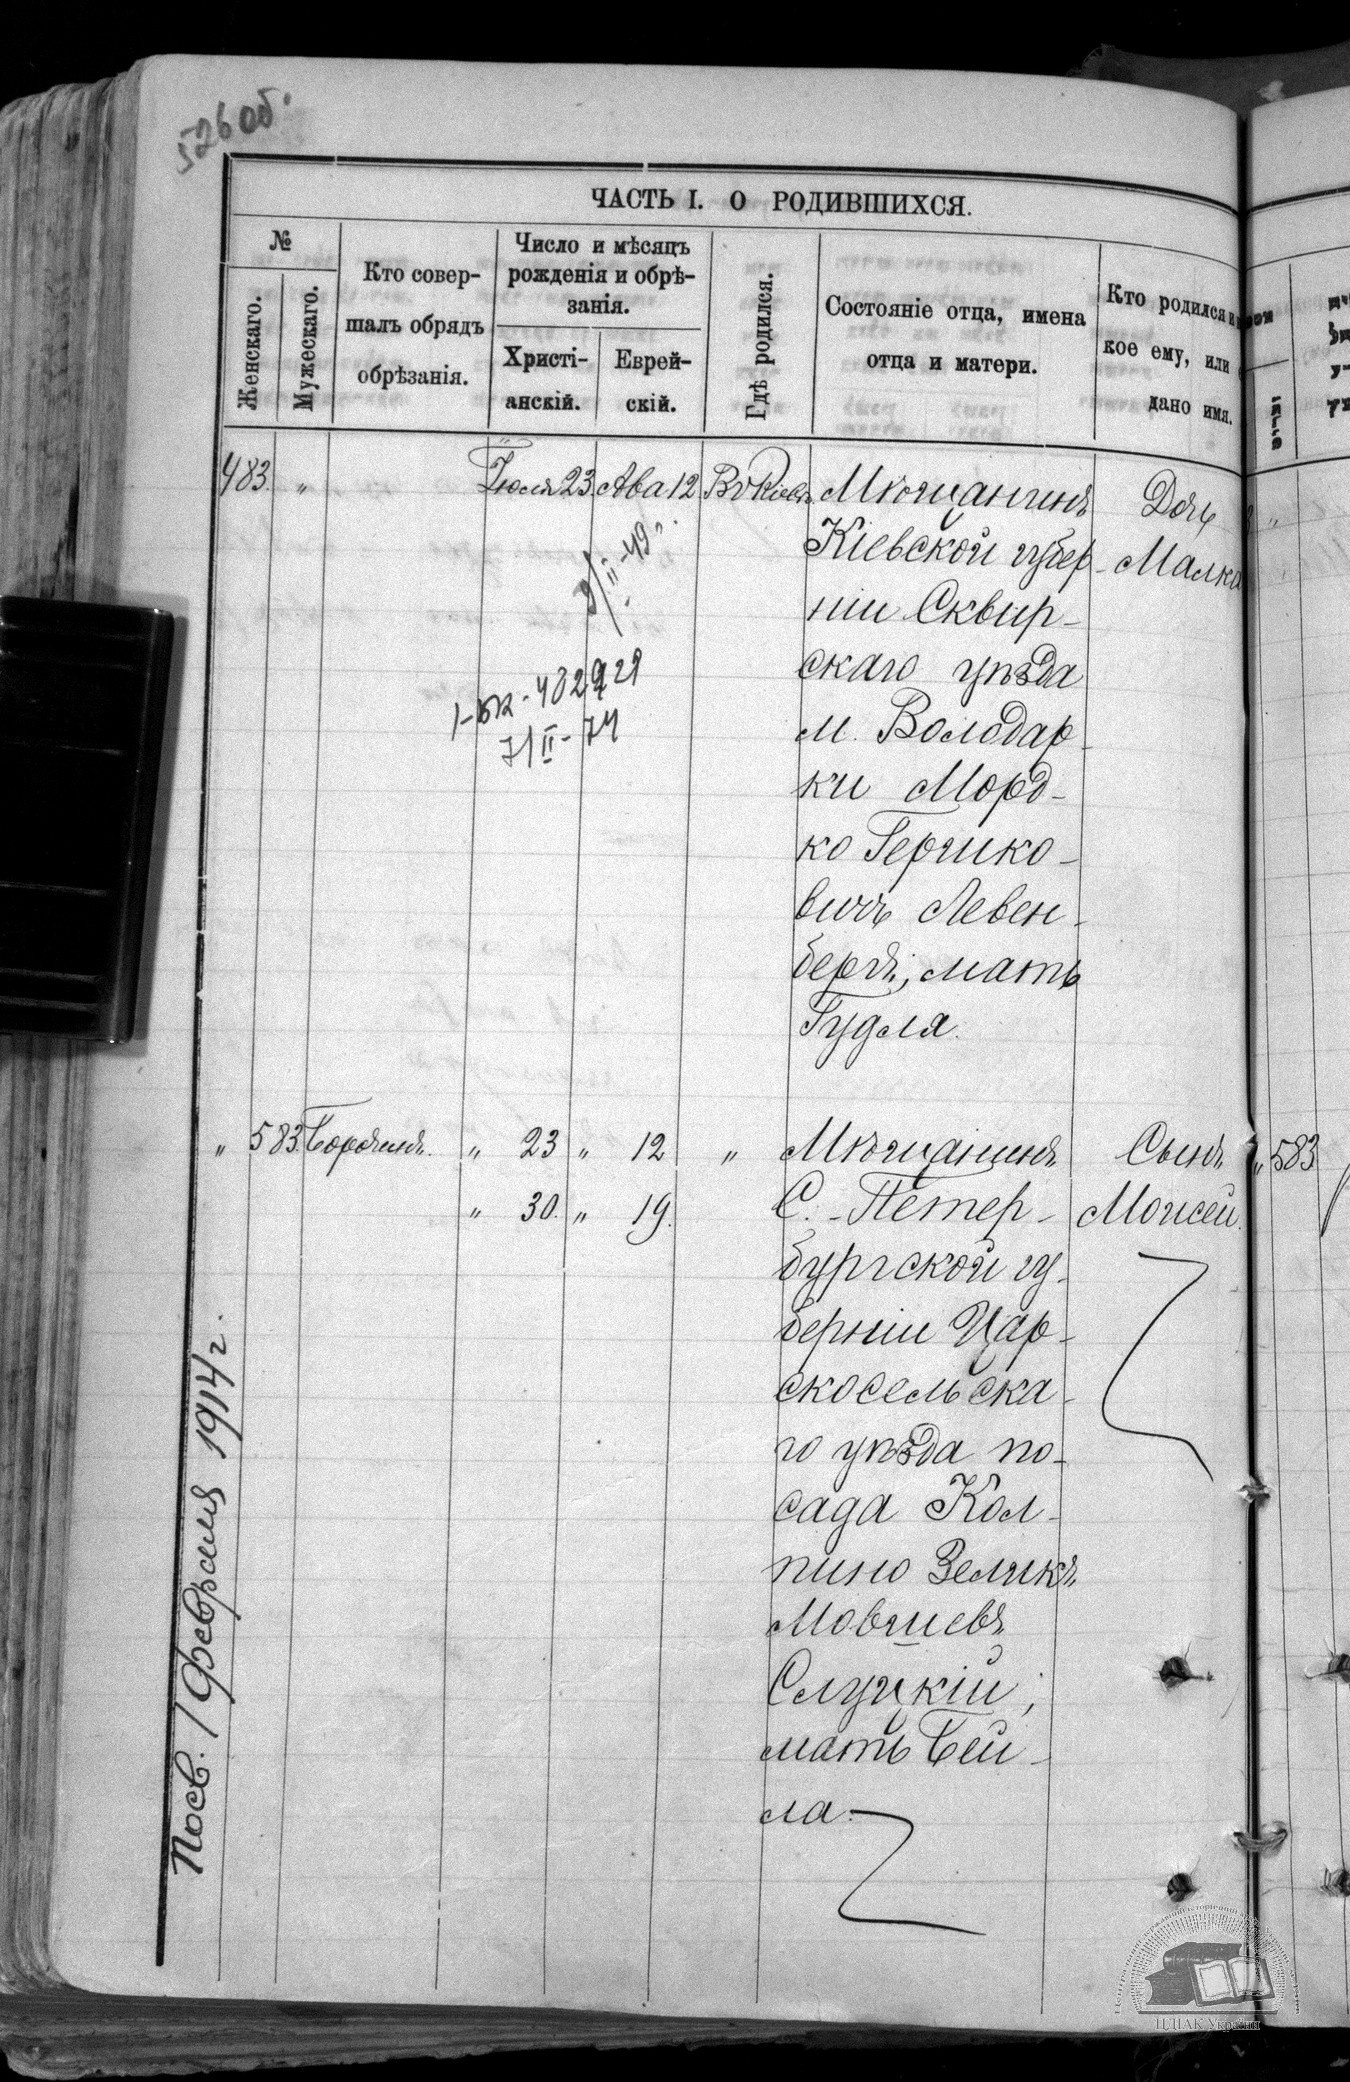 526 об.
ЧАСТЬ I. О РОДИВШИХСЯ.
№
Женскаго.
Мужескаго.
Кто совер-
шалъ обрядъ
обрѣзанія.
Число и мѣсяцъ
рожденія и обрѣ-
занія.
Христі-
анскій.
Еврей-
скій.
Гдѣ родился.
Состояніе отца, имена
отца и матери.
Кто родился и
кое ему, или
дано имя.
483. " Іюля 23. Ава 12 Въ Кіевѣ
Мѣщанинъ
Кіевской губер-
ніи Сквир-
скаго уѣзда
м. Володар-
ки Морд-
ко Гершко-
вичъ Левен-
бергъ, мать
Гудля.
Дочь
Малка
9/II-49г.
7/II-74
" 583. Бородинъ. " 23 " 12 "
" 30. " 19.
Мѣщанинъ
С.-Петер-
бургской гу-
берніи Цар-
скосельска-
го уѣзда по-
сада Кол-
пино Зеликъ
Мовшевъ
Слуцкій;
мать Бей-
ла.
Сынъ
Моисей.
" 583
Посв. 1 Февраля 1914 г.
ЦДІАК України